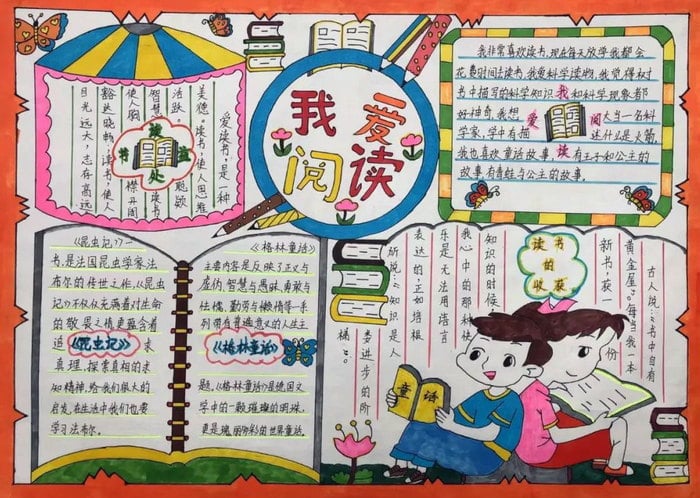 我 爱
阅 读
爱读书,是一种
美德。读书,使人思维
活跃。聪颖
智慧 读书
使人胸 襟开阔
豁达晓畅;读书,使人
目光远大,志存高远
读
书 益
处
我非常喜欢读书,现在每天放学我都会
花费时间去读书。我爱科学读物,我觉得对
书中描写的科学知识我和科学现象都
好神奇,我想 爱 阅 大当一名科
学家,学中有描 述什么是火箭,
我也喜欢童话故事,读有王子和公主的
故事,有青蛙与公主的故事.
《昆虫记》一
书,是法国昆虫学家法
布尔的传世之作,《昆虫
记》不仅从充满着对生命
的敬畏之情更蕴含着
追《昆虫记》求
真理,探索真相的求
知精神,给我们很大的
启发,在生活中我们也要
学习法布尔.
《格林童话》
主要内容是反映了正义与
虚伪,智慧与愚昧,勇敢与
怯懦、勤劳与懒惰等一系
列带有普遍意义的人生主
《格林童话》
题。《格林童话》是德国文
学中的一颗璀璨的明珠。
更是瑰丽多彩的世界童话。
读书
的
收获
古人说:"书中自有
黄金屋"。每当我一本
新书,获一份
知识的时候
我心中的那种快
乐是无法用语言
表达的,正如培根
所说:"知识是人
类进步的阶
梯"。
童话